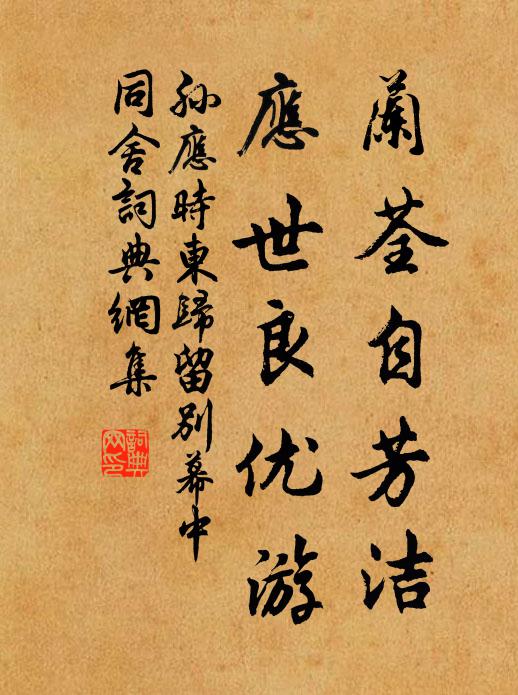 蘭荃自芳洁
應世良优游
孙應時東歸留别幕中
同舍詞典網集
詞典網印